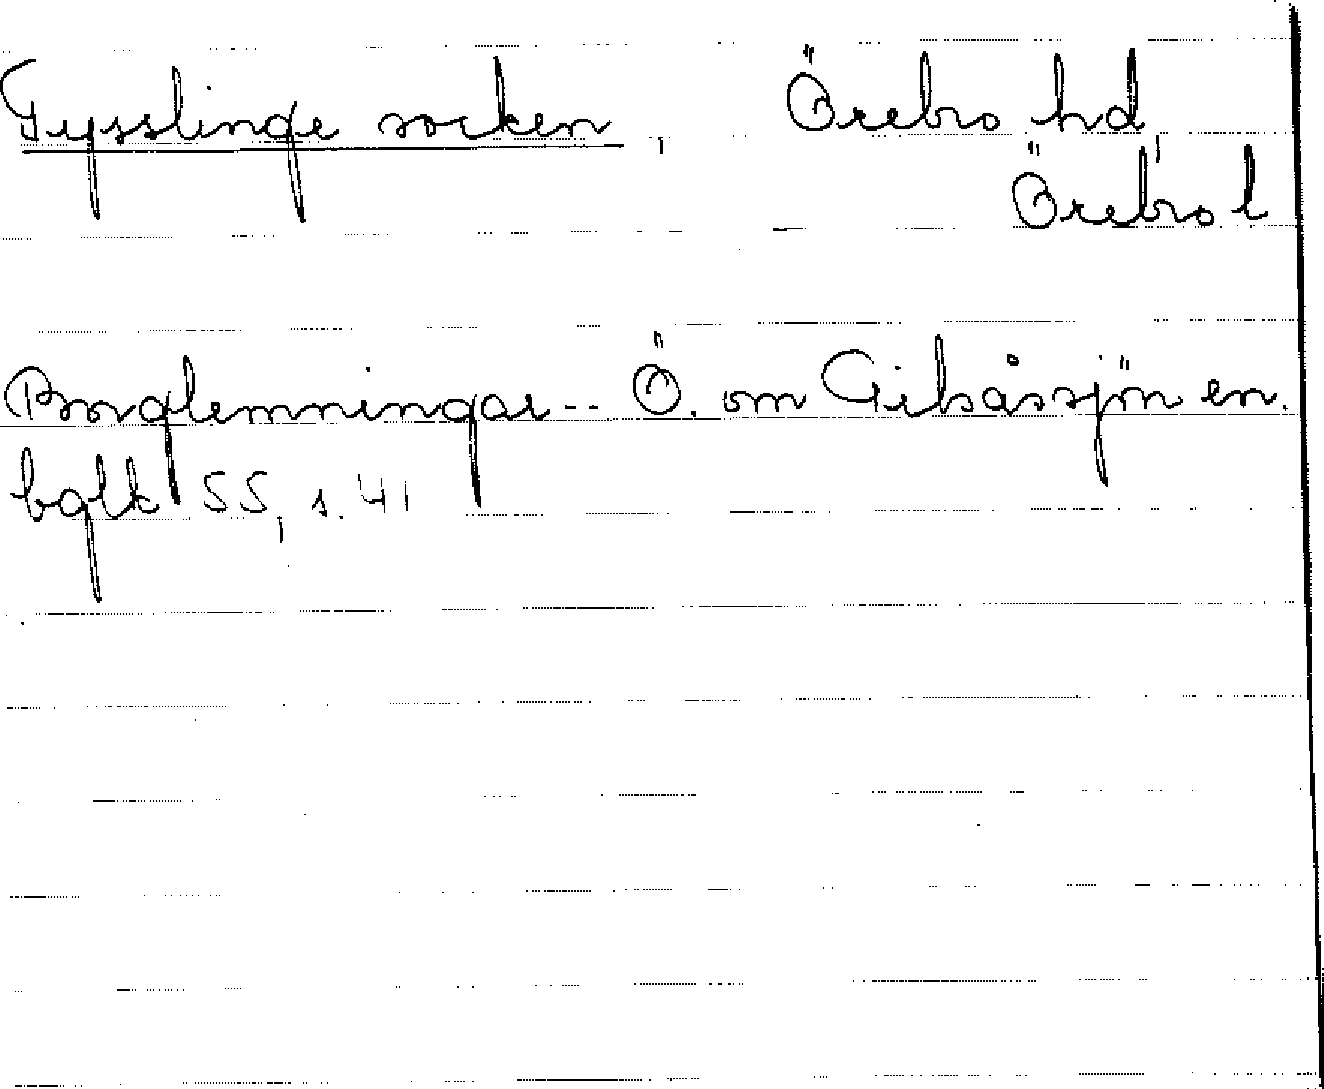 Tysslinge socken, Örebro hd,
Örebro l
Borglemningar -- Ö. om Gihåssjön en.
bglk 55, s. 41